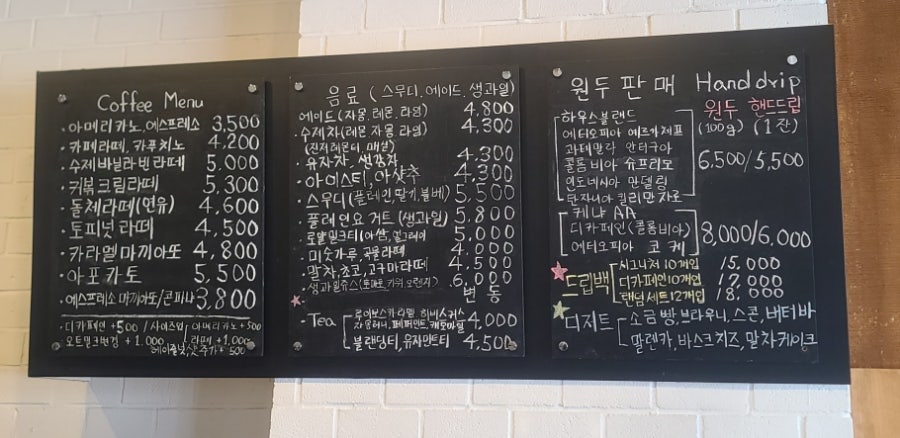 Coffee Menu
· 아메리카노, 에스프레소 3,500
· 카페라떼, 카푸치노 4,200
· 수제 바닐라빈 라떼 5,000
· 커볶 크림라떼 5,300
· 돌체라떼 (연유) 4,600
· 토피넛 라떼 4,500
· 카라멜 마끼아또 4,800
· 아포카토 5,500
· 에스프레소 마끼아또/콘파나 3,800
· 디카페인 +500 / 사이즈업 아메리카노 +500
오트밀크변경 +1,000 라떼 +1,000
헤이즐넛, 샷 추가 + 500
음료 (스무디, 에이드, 생과일)
에이드 (자몽, 레몬, 라임) 4,800
· 수제차 (레몬 자몽 라임) 4,300
(진저레몬티, 매실)
· 유자차, 생강차 4,300
· 아이스티, 아샷추 4,300
· 스무디 (플레인, 딸기, 블베) 5,500
· 플레인 요거트 (생과일) 5,800
· 로얄 밀크티 (아쌈, 얼그레이) 5,000
· 미숫가루, 곡물라떼 4,000
· 말차, 초코, 고구마라떼 4,500
· 생과일쥬스 (토마토, 키위, 오렌지) 6,000
변동
· Tea 루이보스카라멜, 히비스커스
4,000
블랜딩티, 유자민트티 4,500
원두판매 Handdrip
원두 핸드드립
(100g) (1잔)
하우스블랜드
에티오피아 예르가체프
과테말라 안티구아
콜롬비아 슈프리모 6,500/5,500
인도네시아 만델링
탄자니아 킬리만자로
케냐 AA
디카페인 (콜롬비아) 8,000/6,000
에티오피아 코케
드립백 시그니처 10개입 15,000
디카페인 10개입 17,000
랜덤세트 12개입 18,000
디저트 소금빵, 브라우니, 스콘, 버터바
말렌카, 바스크치즈, 말차케이크